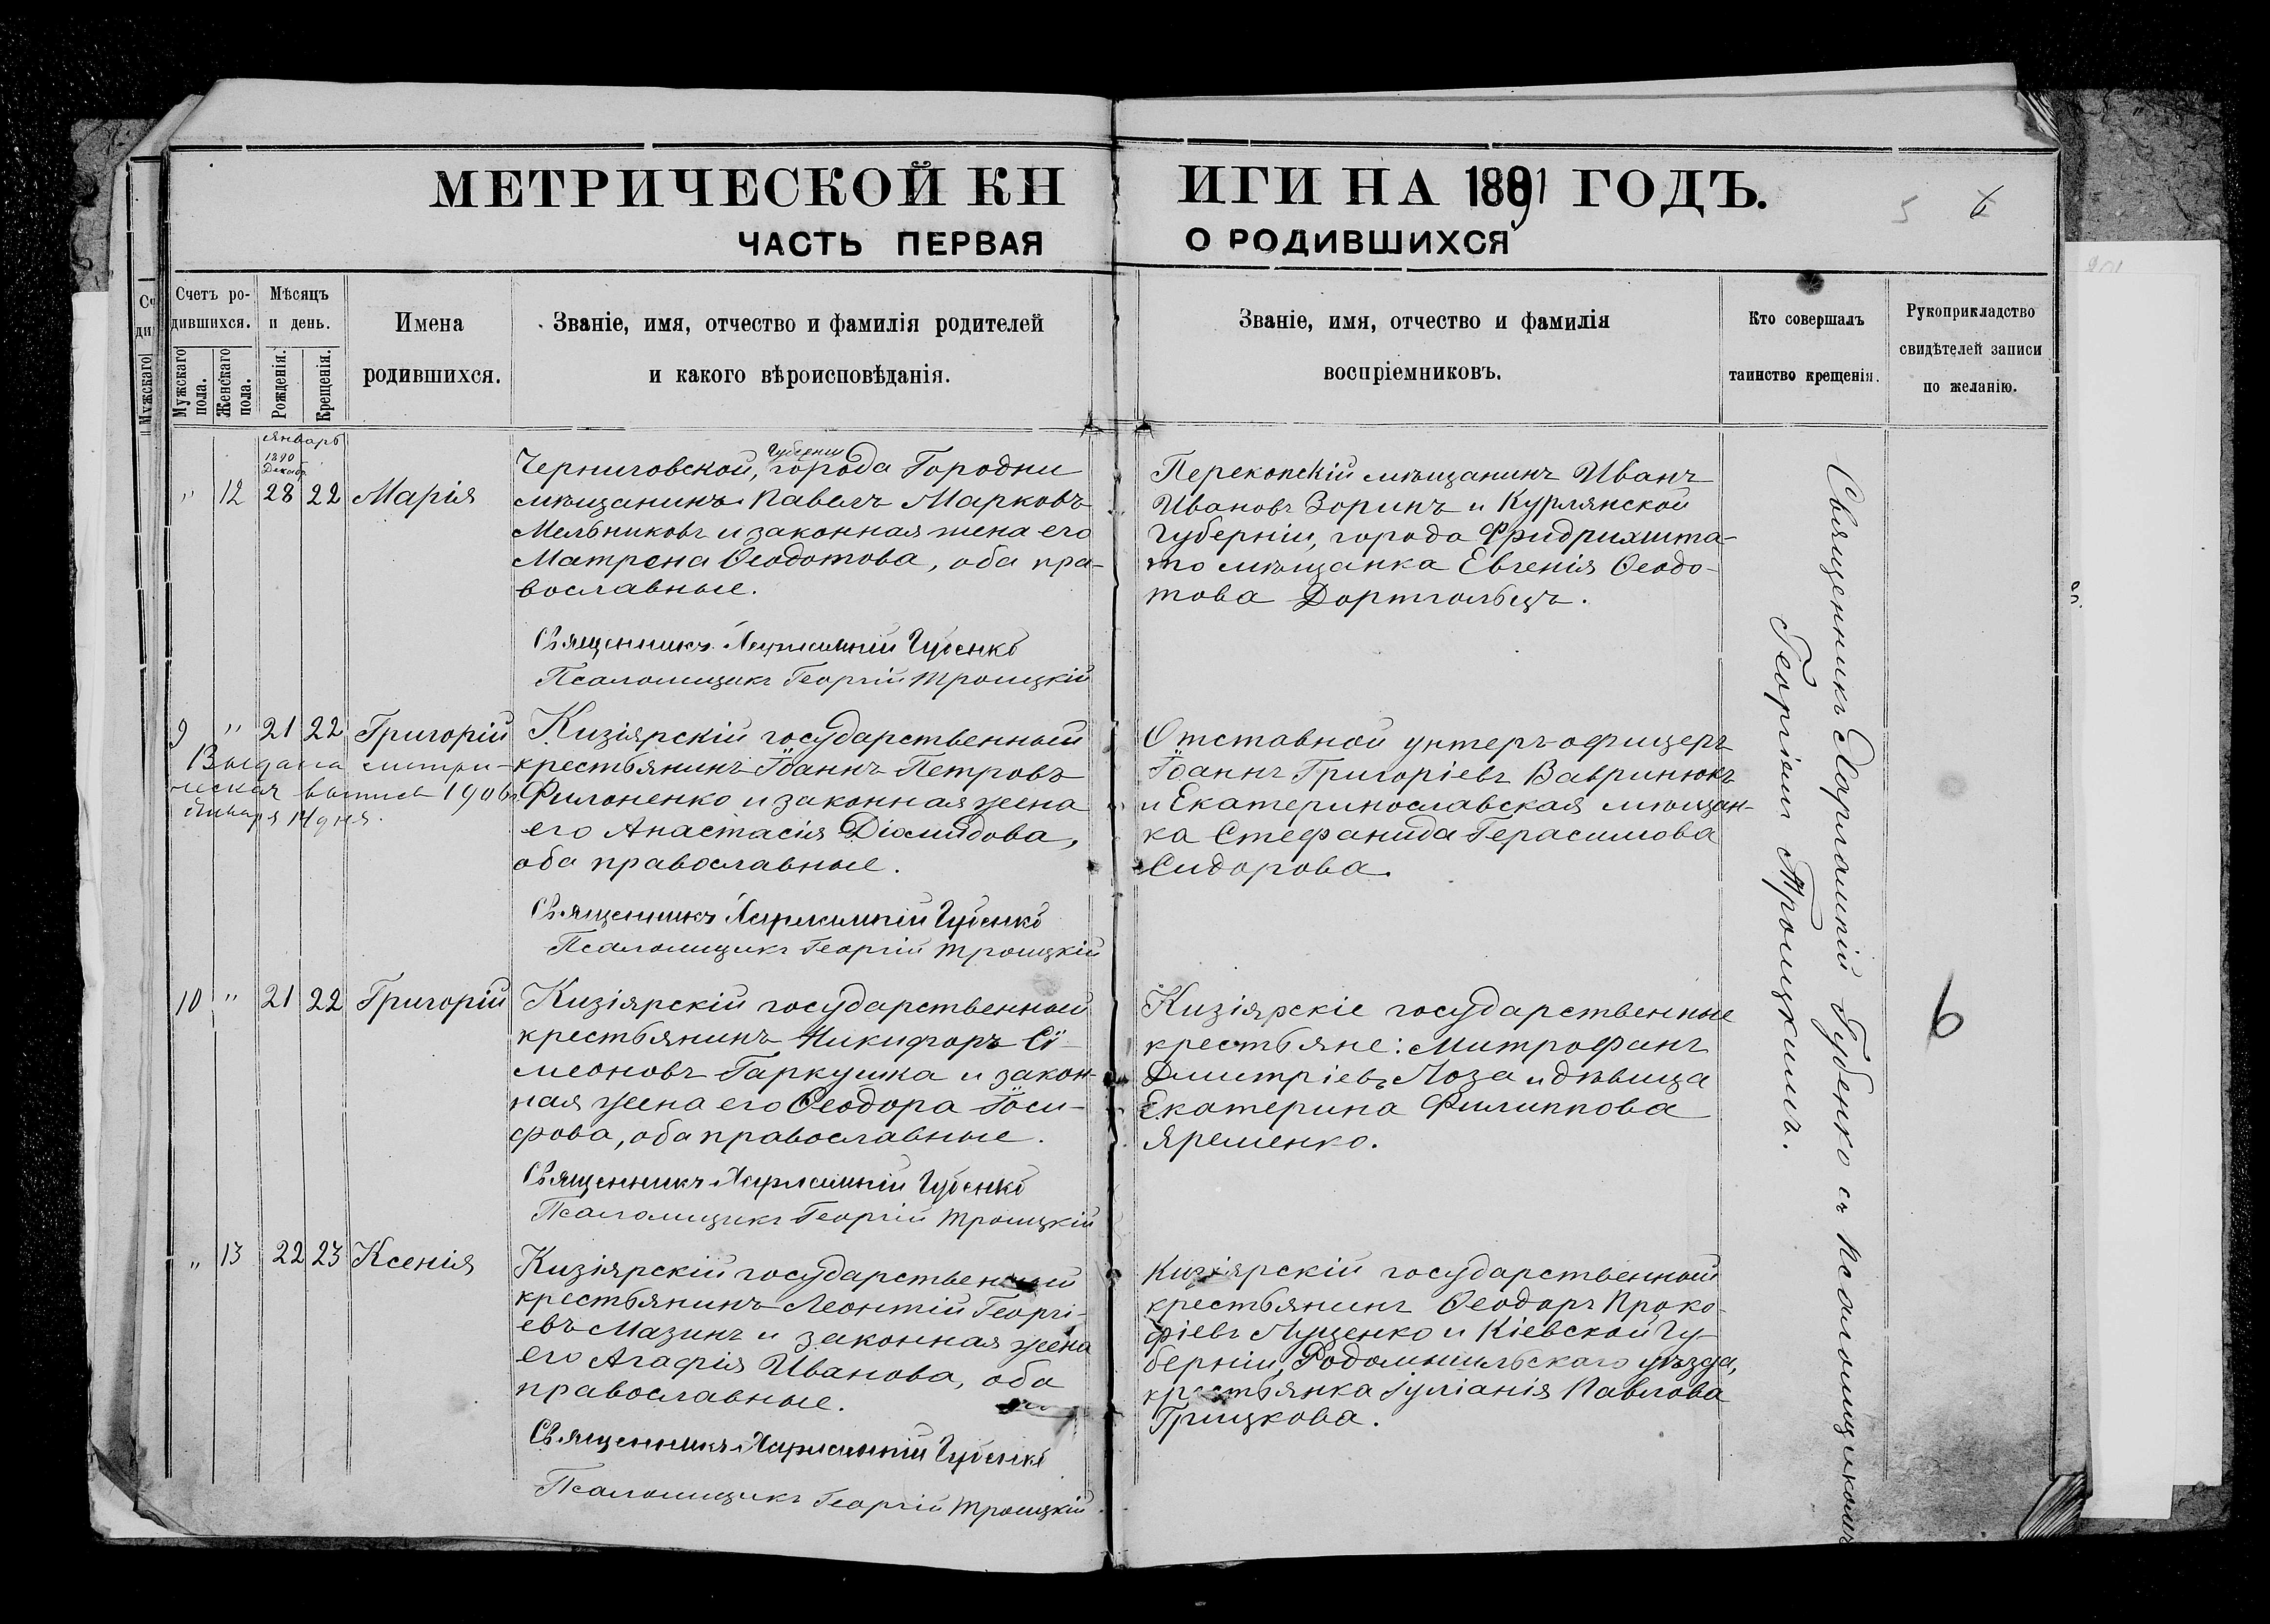 МЕТРИЧЕСКОЙ КНИГИ НА 1891 ГОДЪ.
5 6
ЧАСТЬ ПЕРВАЯ О РОДИВШИХСЯ
Счетъ родившихся.
Мужскаго пола.
Женскаго пола.
Мѣсяцъ и день.
Рожденія.
Крещенія.
Имена
родившихся.
Званіе, имя, отчество и фамилія родителей
и какого вѣроисповѣданія.
Званіе, имя, отчество и фамилія
воспріемниковъ.
Кто совершалъ
таинство крещенія.
Рукоприкладство
свидѣтелей записи
по желанію.
Январь
1890
Декабр.
" 12 28 22 Марія
Черниговской, губерніи города Городни
мѣщанинъ Павелъ Марковъ
Мельниковъ и законная жена его
Матрена Ѳеодотова, оба пра-
вославные.
Священникъ Харлампій Губенко
Псаломщикъ Георгій Троицкій
Перекопскій мѣщанинъ Иванъ
Ивановъ Зоринъ и Курлянской
губерніи, города Фридрихшта-
то мѣщанка Евгенія Ѳеодо-
това Дортгольцъ.
9 " 21 22 Григорій
Выдана метри-
ческая выпись 1906 г.
Января 14 дня.
Кизіярскій государственный
крестьянинъ Іоаннъ Петровъ
Филоненко и законная жена
его Анастасія Діомидова,
оба православные.
Священникъ Харлампій Губенко
Псаломщикъ Георгій Троицкій
Отставной унтеръ-офицеръ
Іоаннъ Григоріевъ Вавринюкъ
и Екатеринославская мѣщан-
ка Стефанида Герасимова
Сидорова.
10 " 21 22 Григорій
Кизіярскій государственный
крестьянинъ Никифоръ Сѵ-
меоновъ Гаркуша и закон-
ная жена его Ѳеодора Іоси-
фова, оба православные.
Священникъ Харлампій Губенко
Псаломщикъ Георгій Троицкій
Кизіярскіе государственные
крестьяне: Митрофанъ
Дмитріевъ Лоза и дѣвица
Екатерина Филиппова
Яременко.
" 13 22 23 Ксенія
Кизіярскій государственный
крестьянинъ Леонтій Георгі-
евъ Мазинъ и законная жена
его Агафія Иванова, оба
православные.
Священникъ Харлампій Губенко
Псаломщикъ Георгій Троицкій
Кизіярскій государственный
крестьянинъ Ѳеодоръ Проко-
фіевъ Луценко и Кіевской гу-
берніи, Радомышльскаго уѣзда,
крестьянка Іуліанія Павлова
Грицкова.
Священникъ Харлампій Губенко съ псаломщикомъ
Георгіемъ Троицкимъ.
6